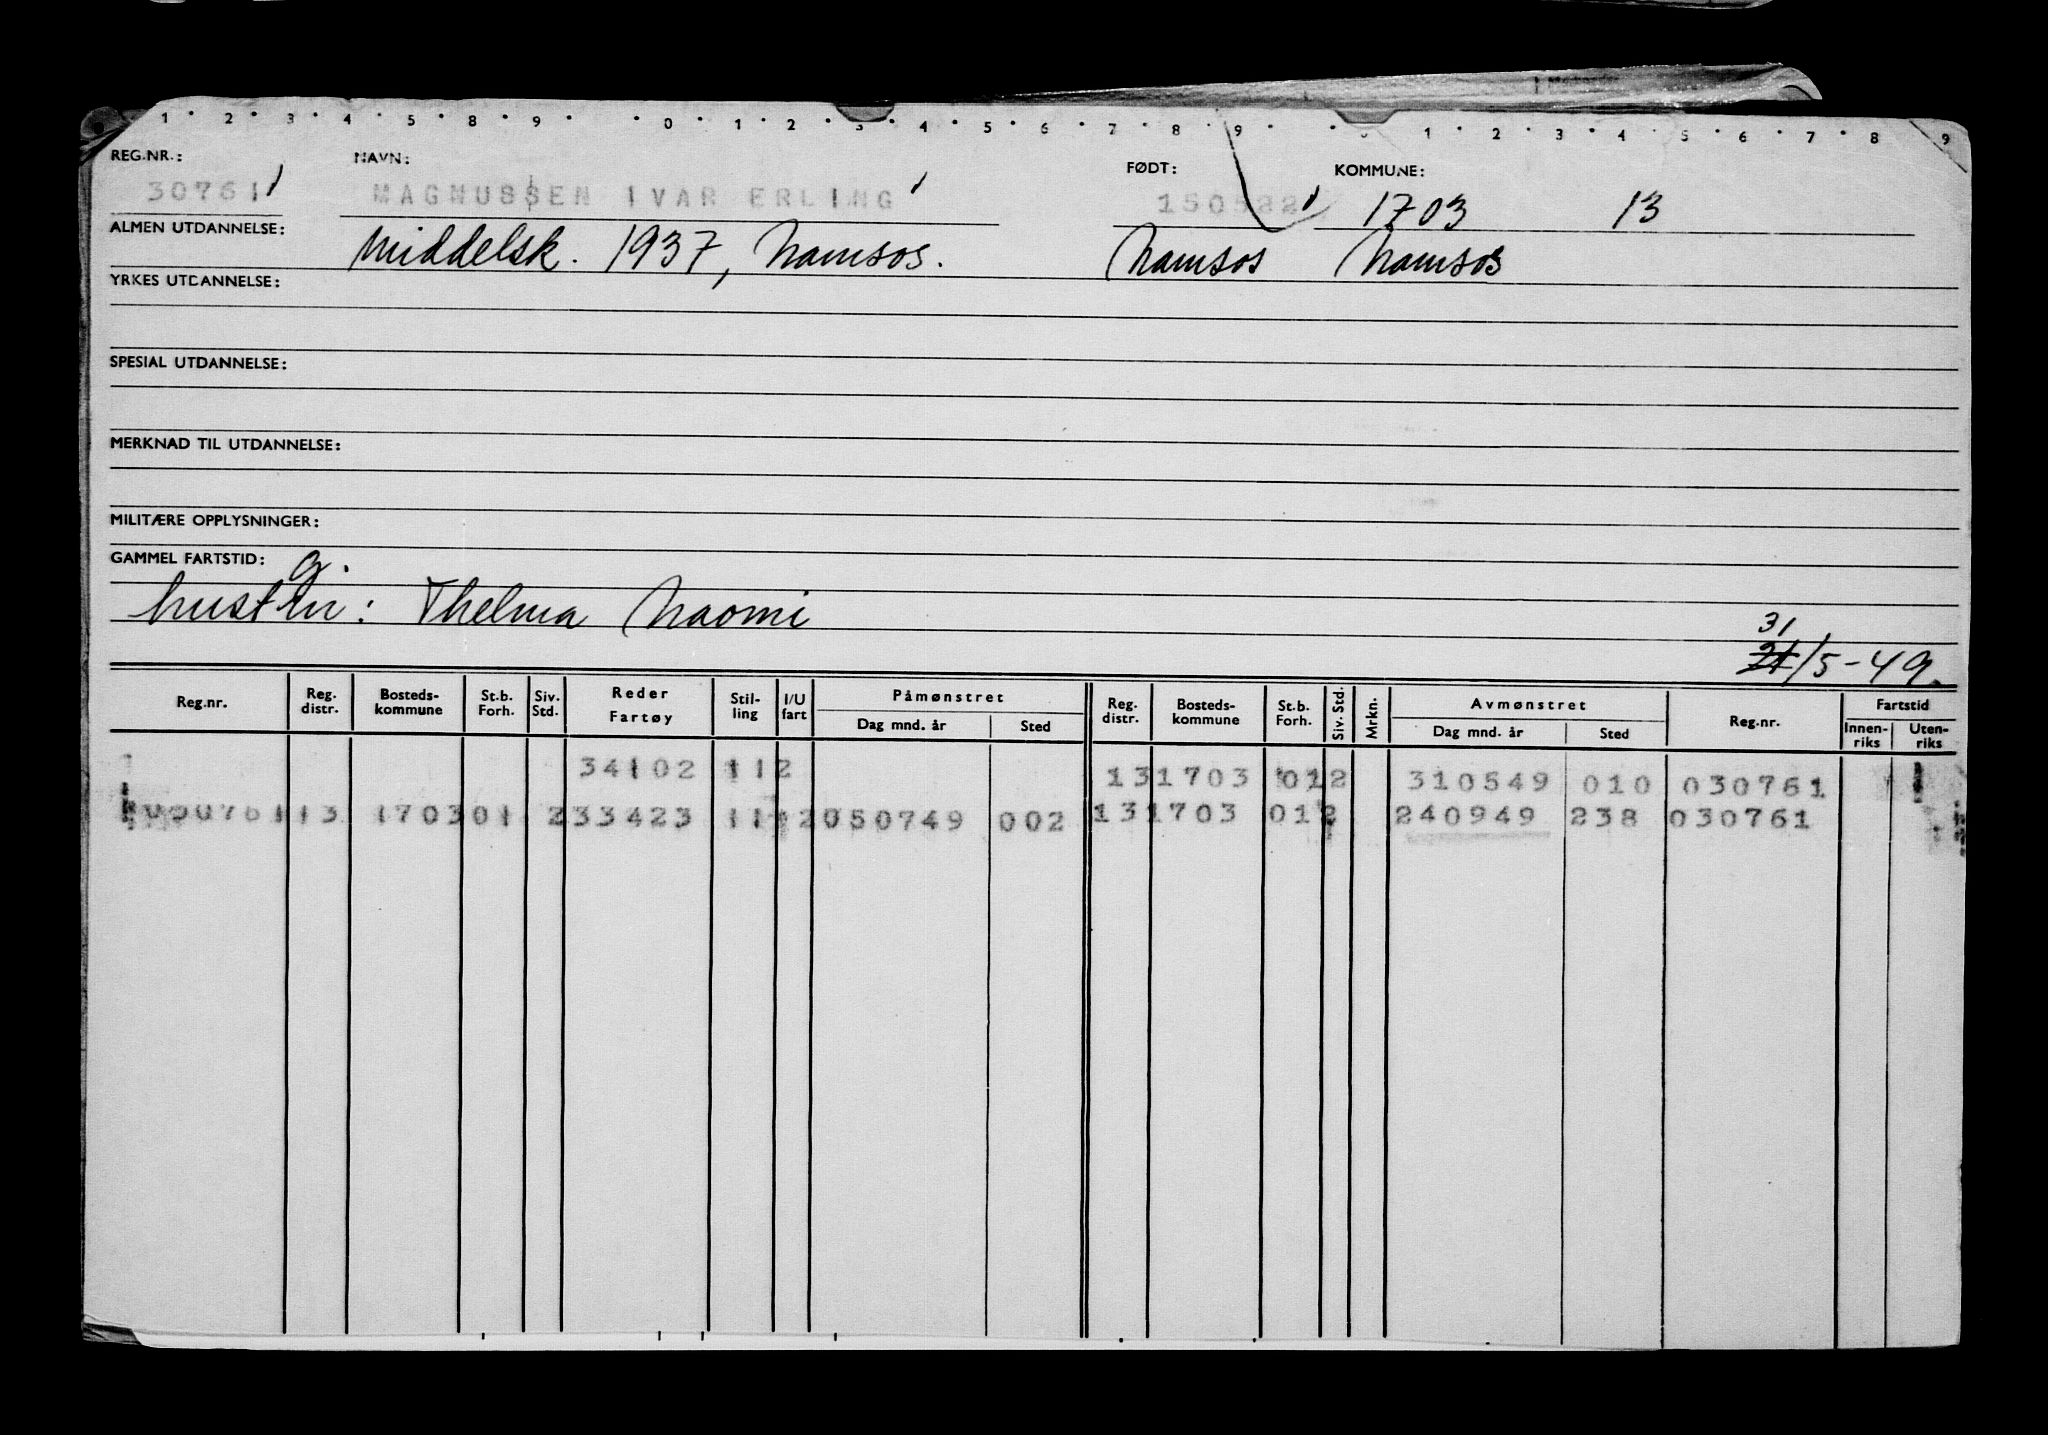 1 2 3 4 5 8 9 0 1 2 3 4 5 6 7 8 9 1 2 3 4 5 6 7 8 9
REG.NR.: NAVN: FØDT: KOMMUNE:
30761 MAGNUSSEN IVAR ERLING 1703 13
ALMEN UTDANNELSE: Middelsk. 1937, Namsos. Namsos Namsos
YRKES UTDANNELSE:
SPESIAL UTDANNELSE:
MERKNAD TIL UTDANNELSE:
MILITÆRE OPPLYSNINGER:
GAMMEL FARTSTID: g.
hustru: Thelma Naomi
31
21/5-49.
Reg.nr. Reg. distr. Bosteds-kommune St.b. Forh. Siv. Std. Reder Fartøy Stil-ling I/U fart Påmønstret Dag mnd. år Sted Reg. distr. Bosteds-kommune St.b. Forh. Siv. Std. Mrkn. Avmønstret Dag mnd. år Sted Reg.nr. Fartstid Innen-riks Uten-riks
34102 112 131703 012 310549 010 030761
030761 13 170301 233423 11 2 050749 002 131703 012 240949 238 030761